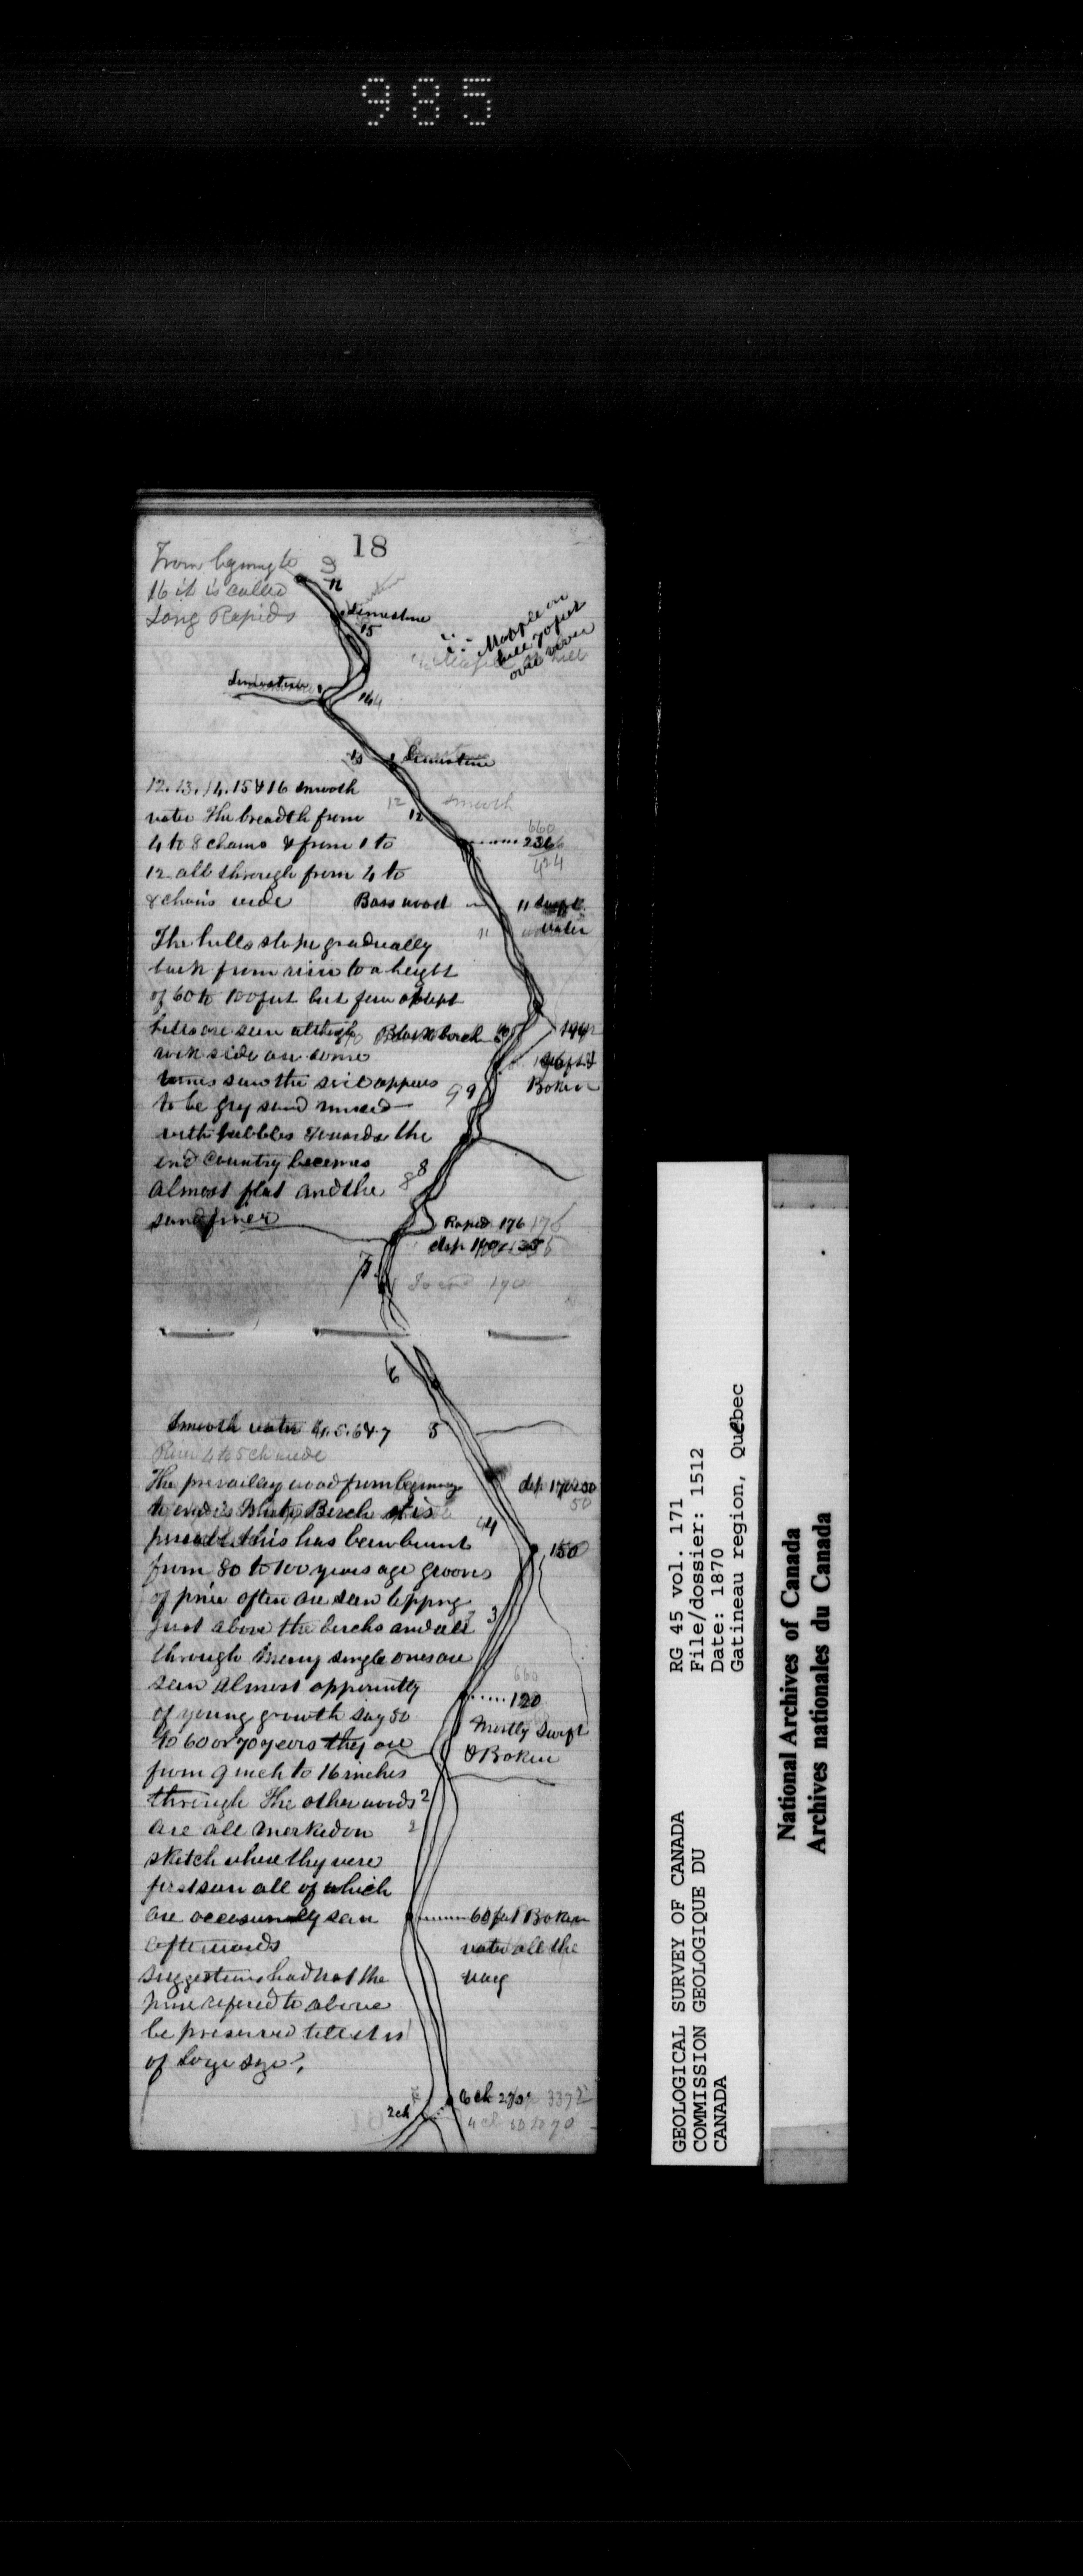 985
18
From begining to
16 it is called
Long Rapids
Limestone
15
Mapple on
hill 70 feet
over river
Limestone
14
13
Limestone
12. 13. 14. 15 & 16 smooth
water The breadth from
4 to 8 chains & from 1 to
12 all through from 4 to
8 chains wide
12 smooth
12
660
236
424
Bass wood
11 swift
water
The hills slope gradually
back from river to a height
of 60 to 100 feet but few abrupt
hills are seen although
rock side are some
times seen the soil appears
to be grey sand mixed
with pebbles Towards the
end Country becomes
almost flat and the
sand finer
Black birch
10
swift &
Boken
9 9
8
8
Rapid 176 176
dip
7
190
6
Smooth water 4. 5. 6 & 7
5
River 4 to 5 ch wide
The prevailing wood from begining
to end is White Birch it is
this has been burnt
from 80 to 100 years ago grooves
of pine often are seen topping
just above the birchs and all
through many single ones are
seen almost apparintly
of young growth say 50
to 60 or 70 years they are
from 9 inch to 16 inches
through The other woods
are all marked on
sketch where they were
first seen all of which
are seen
afterwards
suggestion had not the
pine refered to above
be preserved till it is
of large size?
dip
50
4
150
3
660
120
Mostly swift
& Boken
2
2
60 feet Boken
water all the
way
2 ch
6 ch
4 ch
GEOLOGICAL SURVEY OF CANADA
COMMISSION GEOLOGIQUE DU
CANADA
RG 45 vol. 171
File/dossier: 1512
Date: 1870
Gatineau region, Québec
National Archives of Canada
Archives nationales du Canada